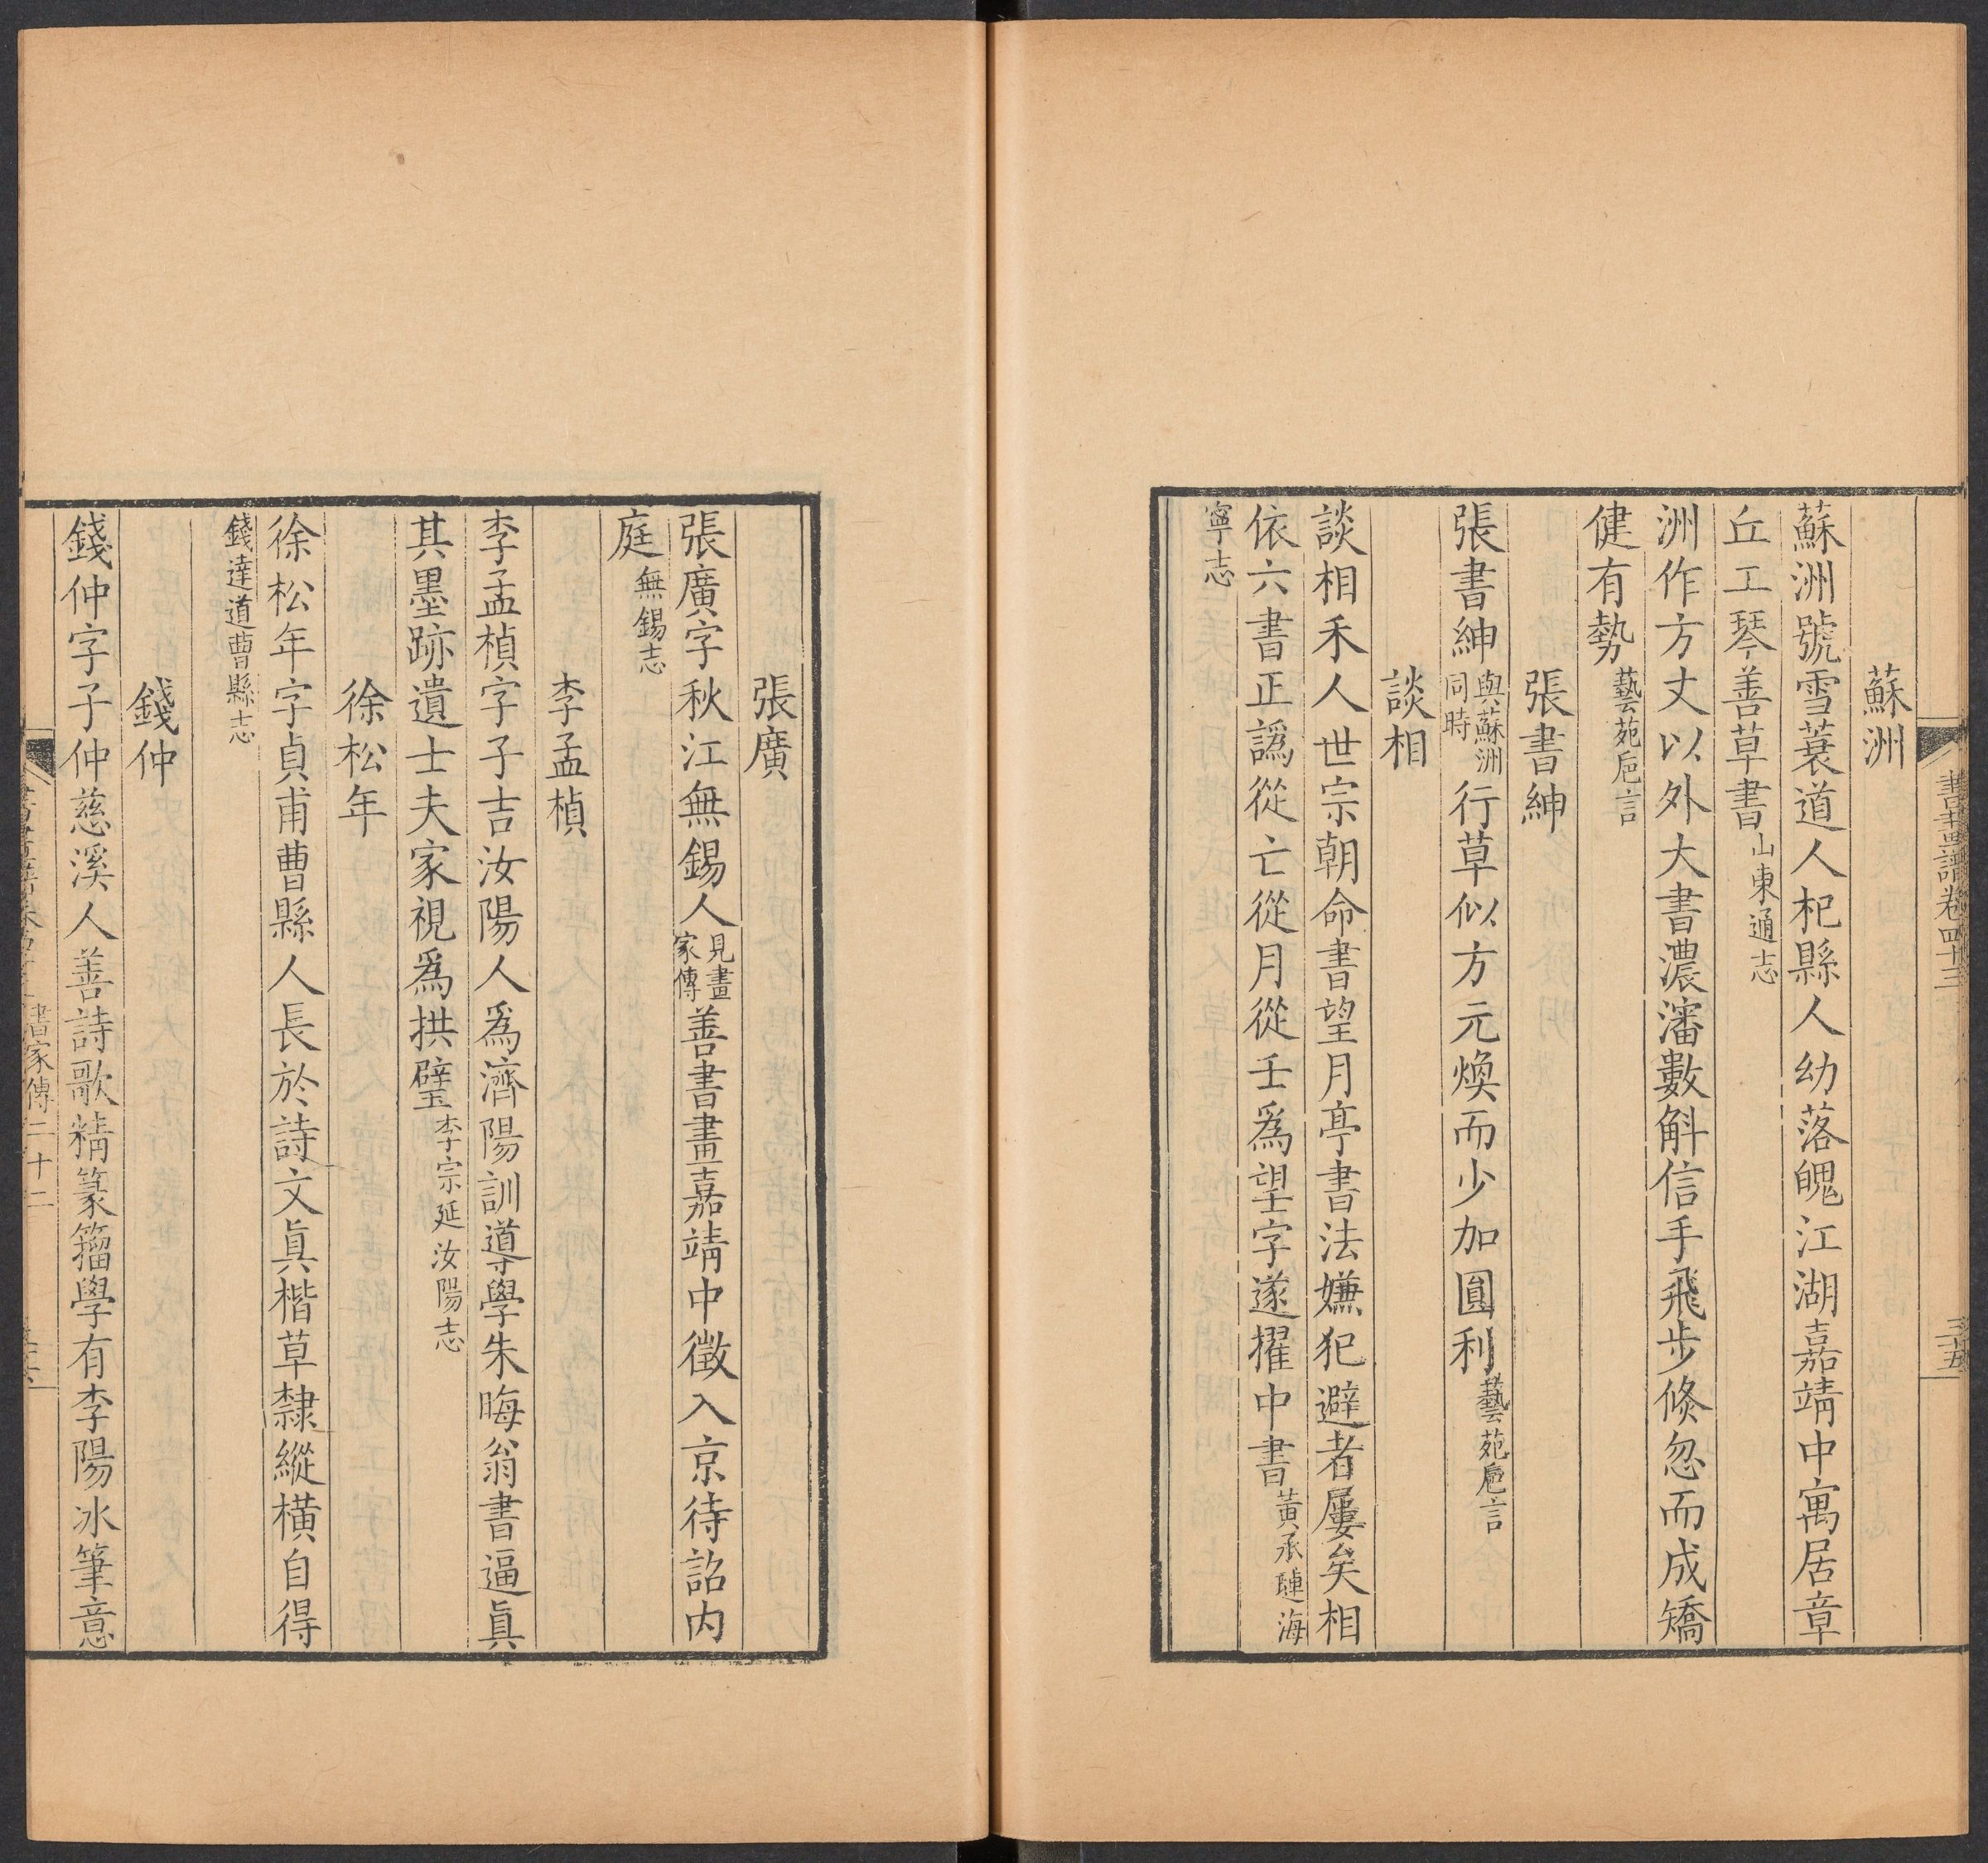 書畫譜卷四十三
三十五
蘇洲
蘇洲號雪蓑道人杞縣人幼落魄江湖嘉靖中寓居章
丘工琴善草書山東通志
洲作方丈以外大書濃瀋數斛信手飛步倏忽而成矯
健有勢藝苑巵言
張書紳
張書紳與蘇洲同時行草似方元煥而少加圓利藝苑巵言
談相
談相禾人世宗朝命書望月亭書法嫌犯避者屢矣相
依六書正譌從亡從月從壬爲望字遂擢中書黃承㻞海
寧志
張廣
張廣字秋江無錫人見畫家傳善書畫嘉靖中徵入京待詔内
庭無錫志
李孟楨
李孟楨字子吉汝陽人爲濟陽訓導學朱晦翁書逼眞
其墨跡遺士夫家視爲拱璧李宗延汝陽志
徐松年
徐松年字貞甫曹縣人長於詩文眞楷草隸縱橫自得
錢達道曹縣志
錢仲
錢仲字子仲慈溪人善詩歌精篆籀學有李陽冰筆意
書家傳二十二